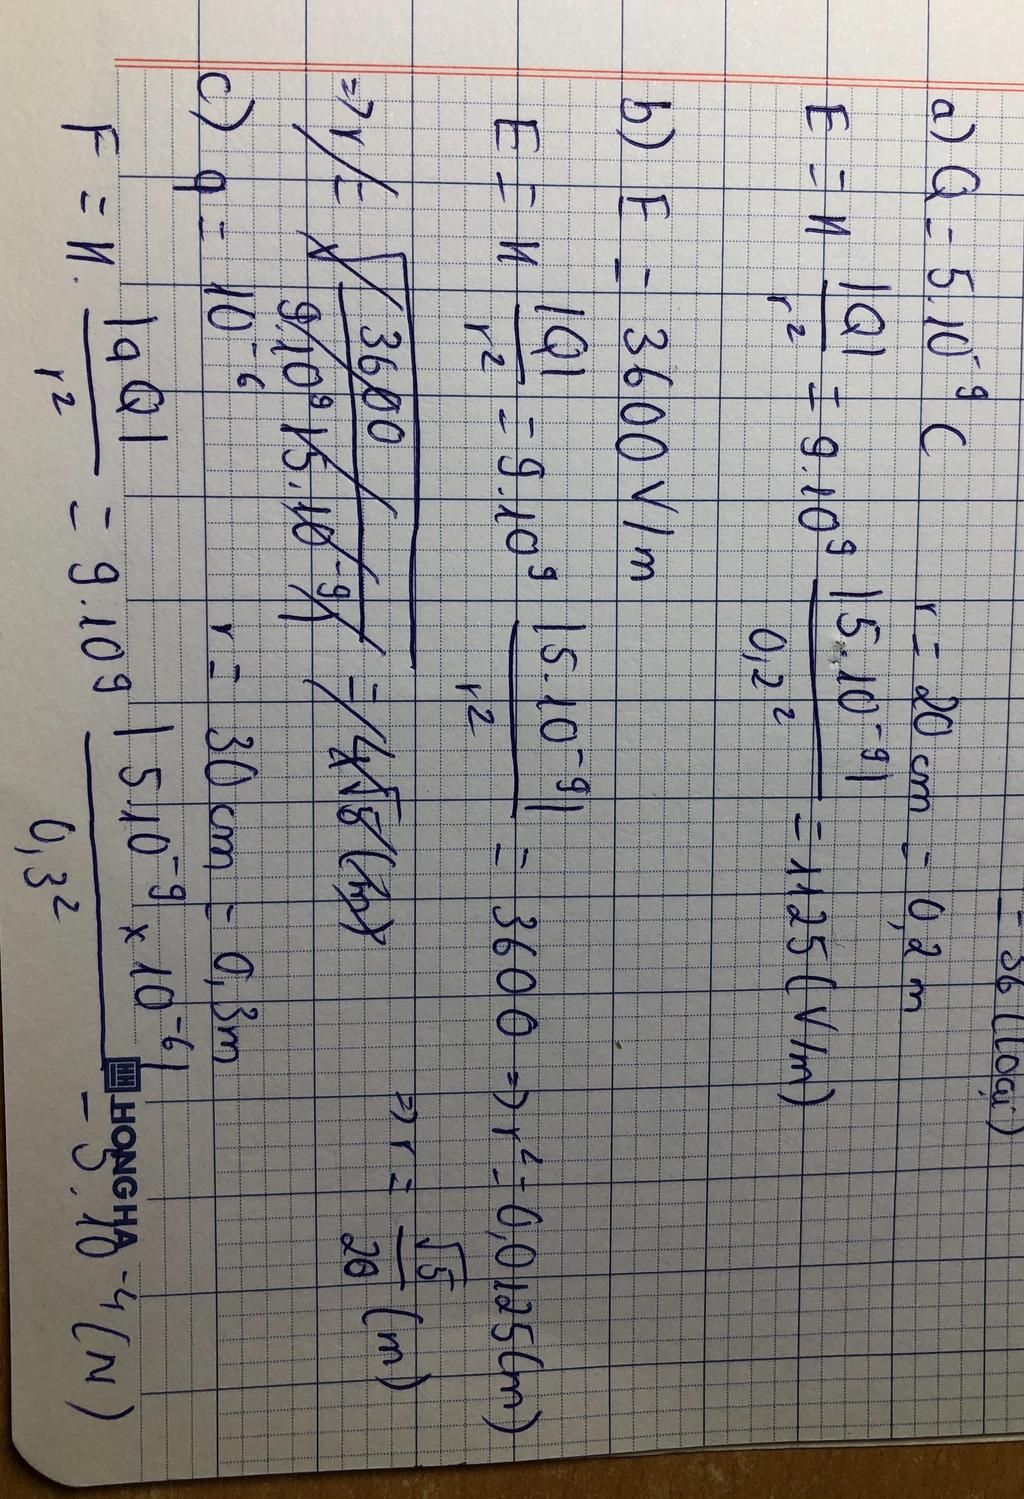 = 36 (loại)
a) Q = 5.10⁻⁹ C r = 20 cm = 0,2 m
E = k |Q|/r² = 9.10⁹ |5.10⁻⁹|/0,2² = 1125 (V/m)
b) E = 3600 V/m
E = k |Q|/r² = 9.10⁹ |5.10⁻⁹|/r² = 3600 => r² = 0,0125 (m)
=> r = √5/20 (m)
c) q = 10⁻⁶ r = 30 cm = 0,3m
F = k. |qQ|/r² = 9.10⁹ |5.10⁻⁹ x 10⁻⁶|/0,3² = 5.10⁻⁴ (N)
HONG HA